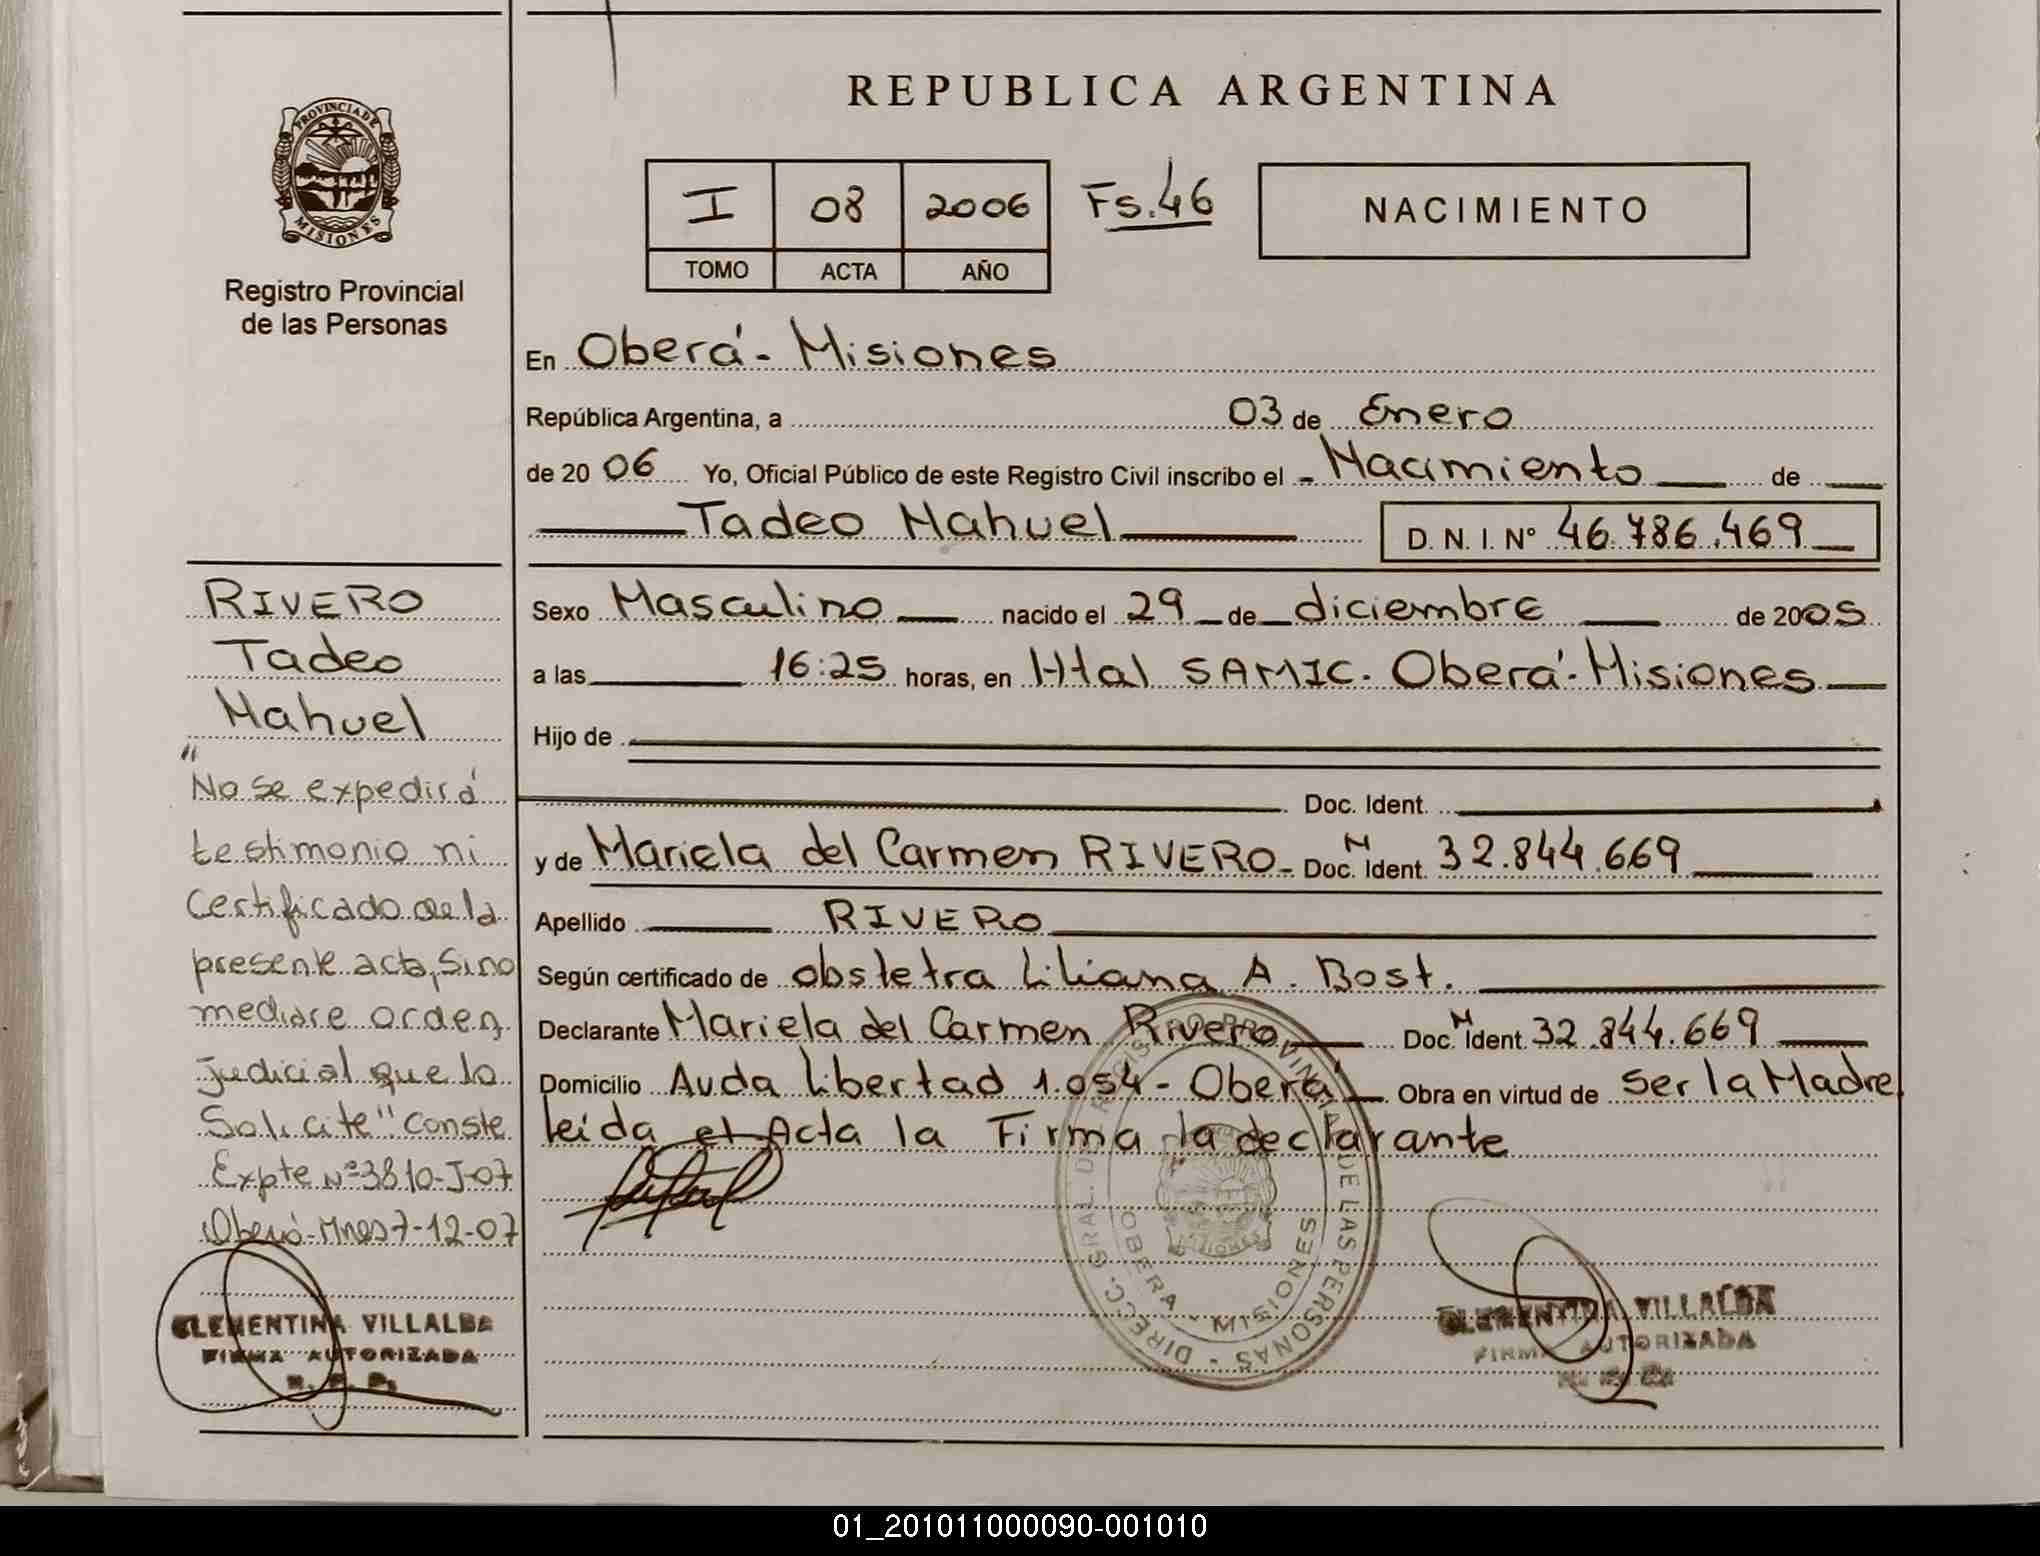 REPUBLICA ARGENTINA
PROVINCIA DE
MISIONES
Registro Provincial
de las Personas
I 08 2006 Fs.46
TOMO ACTA AÑO
NACIMIENTO
En Oberá - Misiones
República Argentina, a 03 de Enero
de 20 06 Yo, Oficial Público de este Registro Civil inscribo el - Nacimiento de
Tadeo Nahuel D. N. I. Nº 46.786.469
Sexo Masculino nacido el 29 de diciembre de 2005
a las 16:25 horas, en Htal SAMIC. Oberá - Misiones
Hijo de
Doc. Ident.
y de Mariela del Carmen RIVERO - Doc. N Ident. 32.844.669
Apellido RIVERO
Según certificado de obstetra Liliana A. Bost.
Declarante Mariela del Carmen Rivero Doc. N Ident. 32.844.669
Domicilio Avda Libertad 1.054 - Oberá Obra en virtud de ser la Madre
leída el Acta la Firma la declarante
RIVERO
Tadeo
Nahuel
"No se expedirá
testimonio ni
Certificado de la
presente acta, sino
mediare orden
judicial que lo
Solicite" conste
Expte Nº 3810-J-07
Oberá - Mnes 7-12-07
CLEMENTINA VILLALBA
FIRMA AUTORIZADA
DIRECC. GRAL. DE REGISTRO PROVINCIAL DE LAS PERSONAS -
OBERA - MISIONES
CLEMENTINA VILLALBA
FIRMA AUTORIZADA
01_201011000090-001010